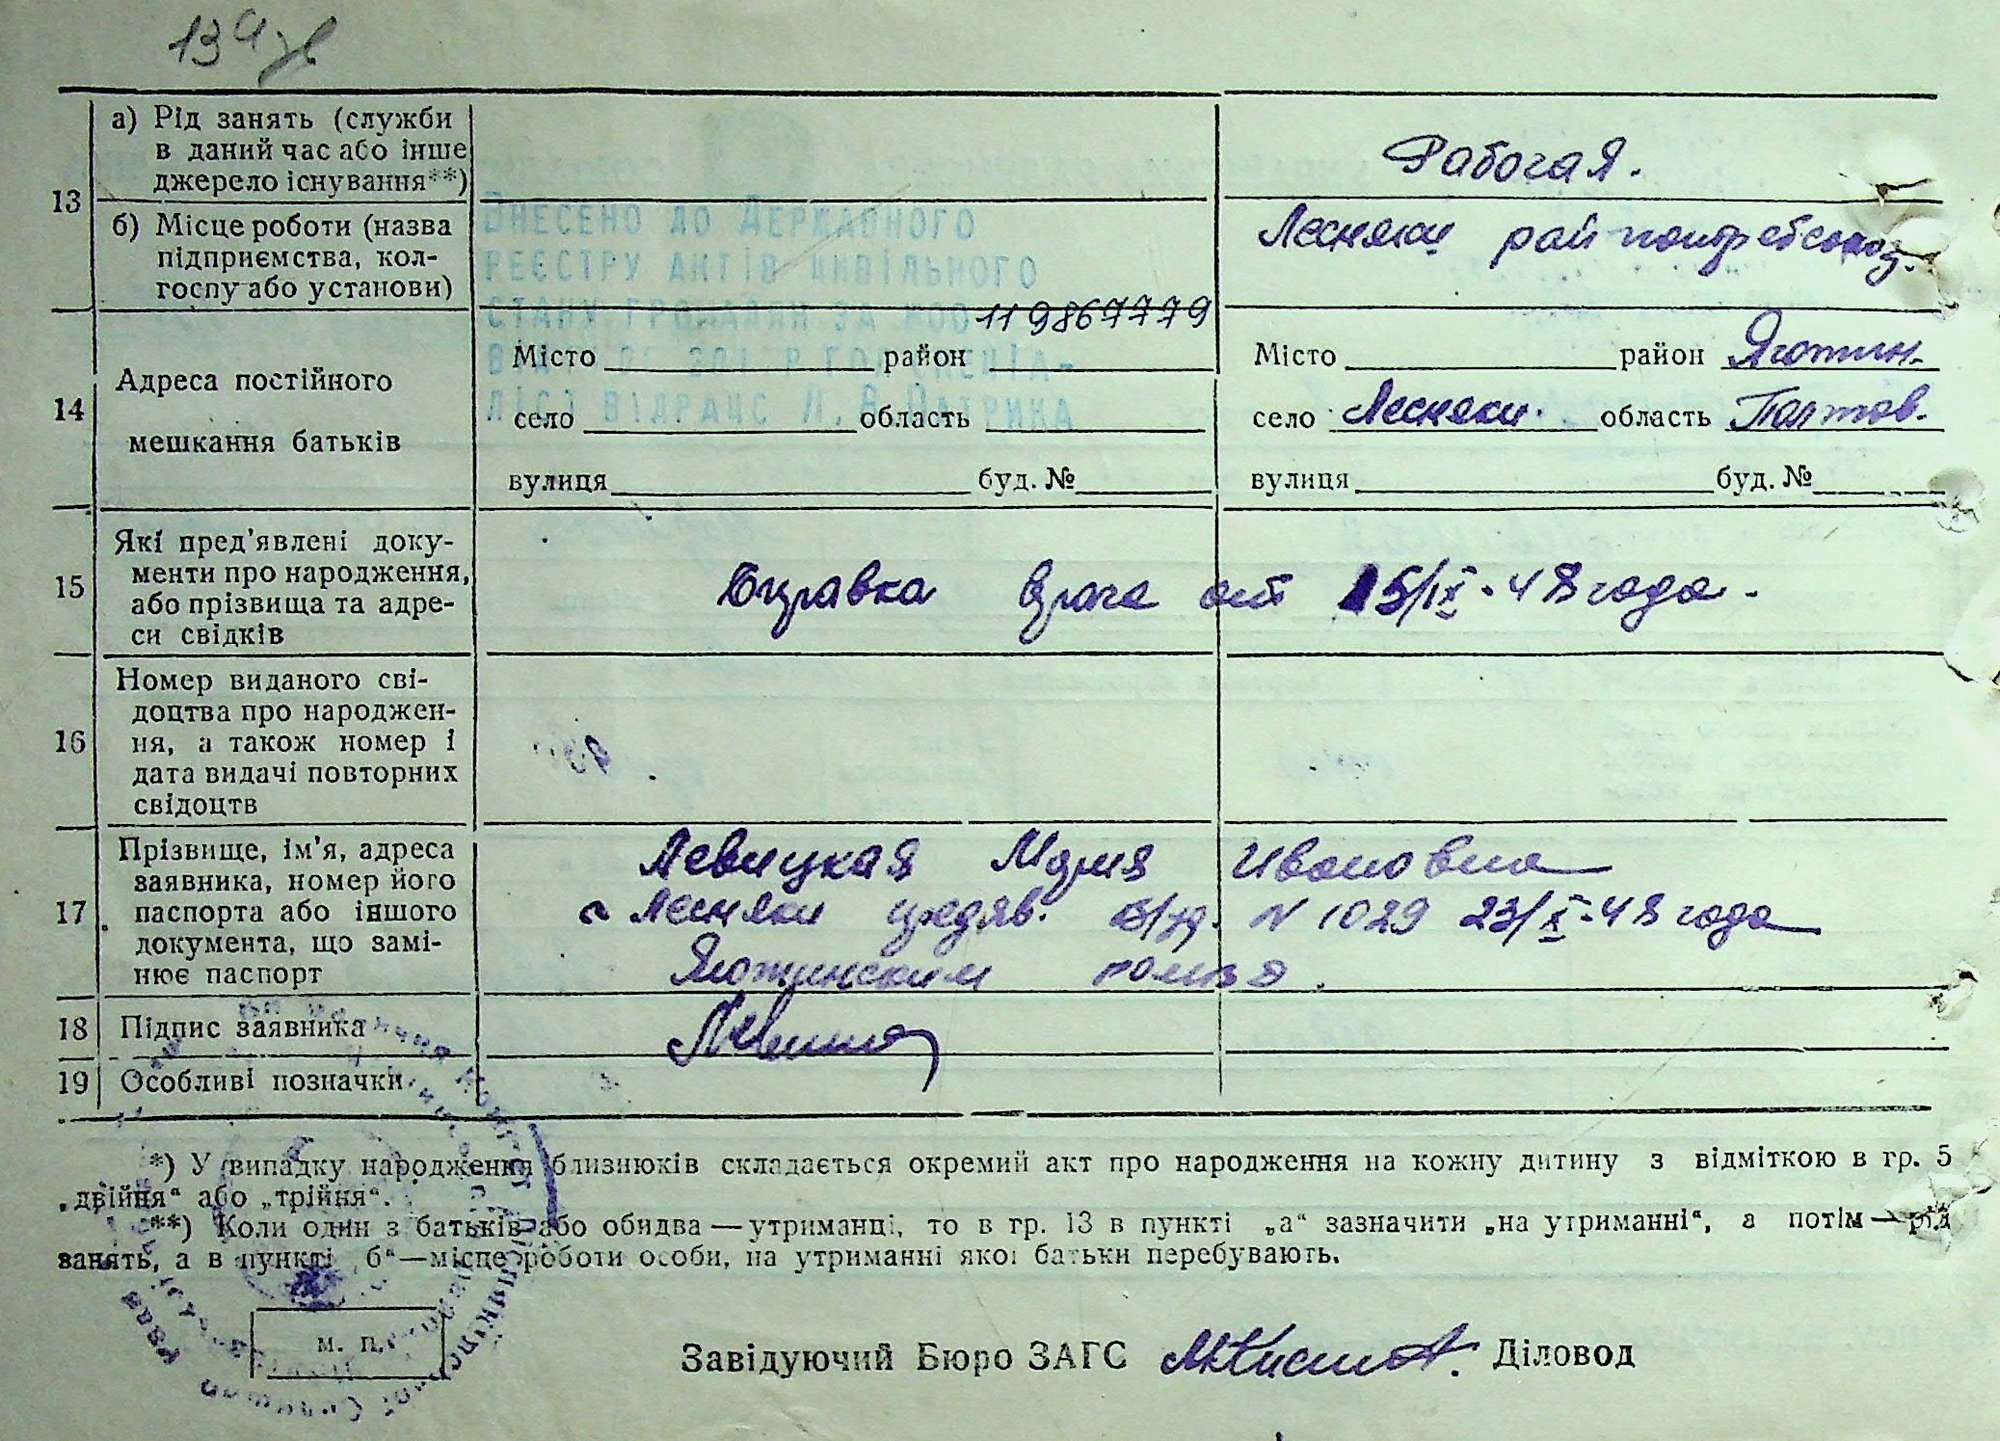 13
а) Рід занять (служби
в даний час або інше
джерело існування**)
Рабочая.
б) Місце роботи (назва
підприємства, кол-
госпу або установи)
Лесняки райпотребсоюз.
ВНЕСЕНО ДО ДЕРЖАВНОГО
РЕЄСТРУ АКТІВ ЦИВІЛЬНОГО
СТАНУ ГРОМАДЯН ЗА
119867779
14
Адреса постійного
мешкання батьків
Місто район
село область
вулиця буд. №
Місто район Яготин.
село Лесняки. область Полтав.
вулиця буд. №
15
Які пред'явлені доку-
менти про народження,
або прізвища та адре-
си свідків
Справка врача от 15/IX-48 года.
16
Номер виданого сві-
доцтва про народжен-
ня, а також номер і
дата видачі повторних
свідоцтв
17
Прізвище, ім'я, адреса
заявника, номер його
паспорта або іншого
документа, що замі-
нює паспорт
Левицкая Мария Ивановна
с Лесняки предяв. N 1029 23/X-48 года
Яготинским
18 Підпис заявника
19 Особливі позначки
*) У випадку народження близнюків складається окремий акт про народження на кожну дитину з відміткою в гр. 5
„двійня“ або „трійня“.
**) Коли один з батьків або обидва — утриманці, то в гр. 13 в пункті „а“ зазначити „на утриманні“, а потім — рід
занять, а в пункті „б“ — місце роботи особи, на утриманні якої батьки перебувають.
м. п.
Завідуючий Бюро ЗАГС Діловод